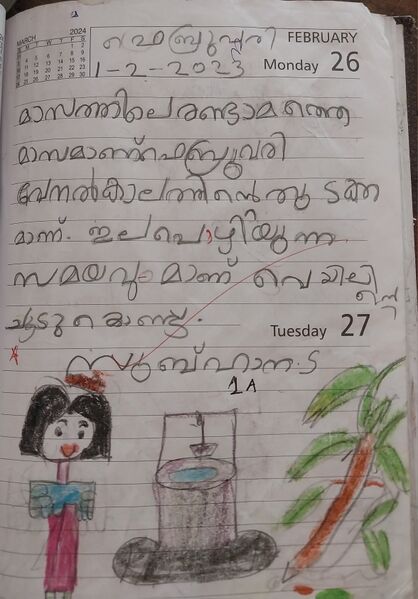 MARCH 2024
ഫെബ്രുവരി FEBRUARY
1-2-2023 Monday 26
മാസത്തിലെ രണ്ടാമത്തെ
മാസമാണ് ഫെബ്രുവരി
വേനൽകാലത്തിൻെറ തുടക്ക
മാണ്. ഇല പൊഴിയുന്ന
സമയവും മാണ് വെയിലി
ൻ്റെ
ചൂടു കൊണ്ട്.
Tuesday 27
സുബ്ഹാന. ട
1A